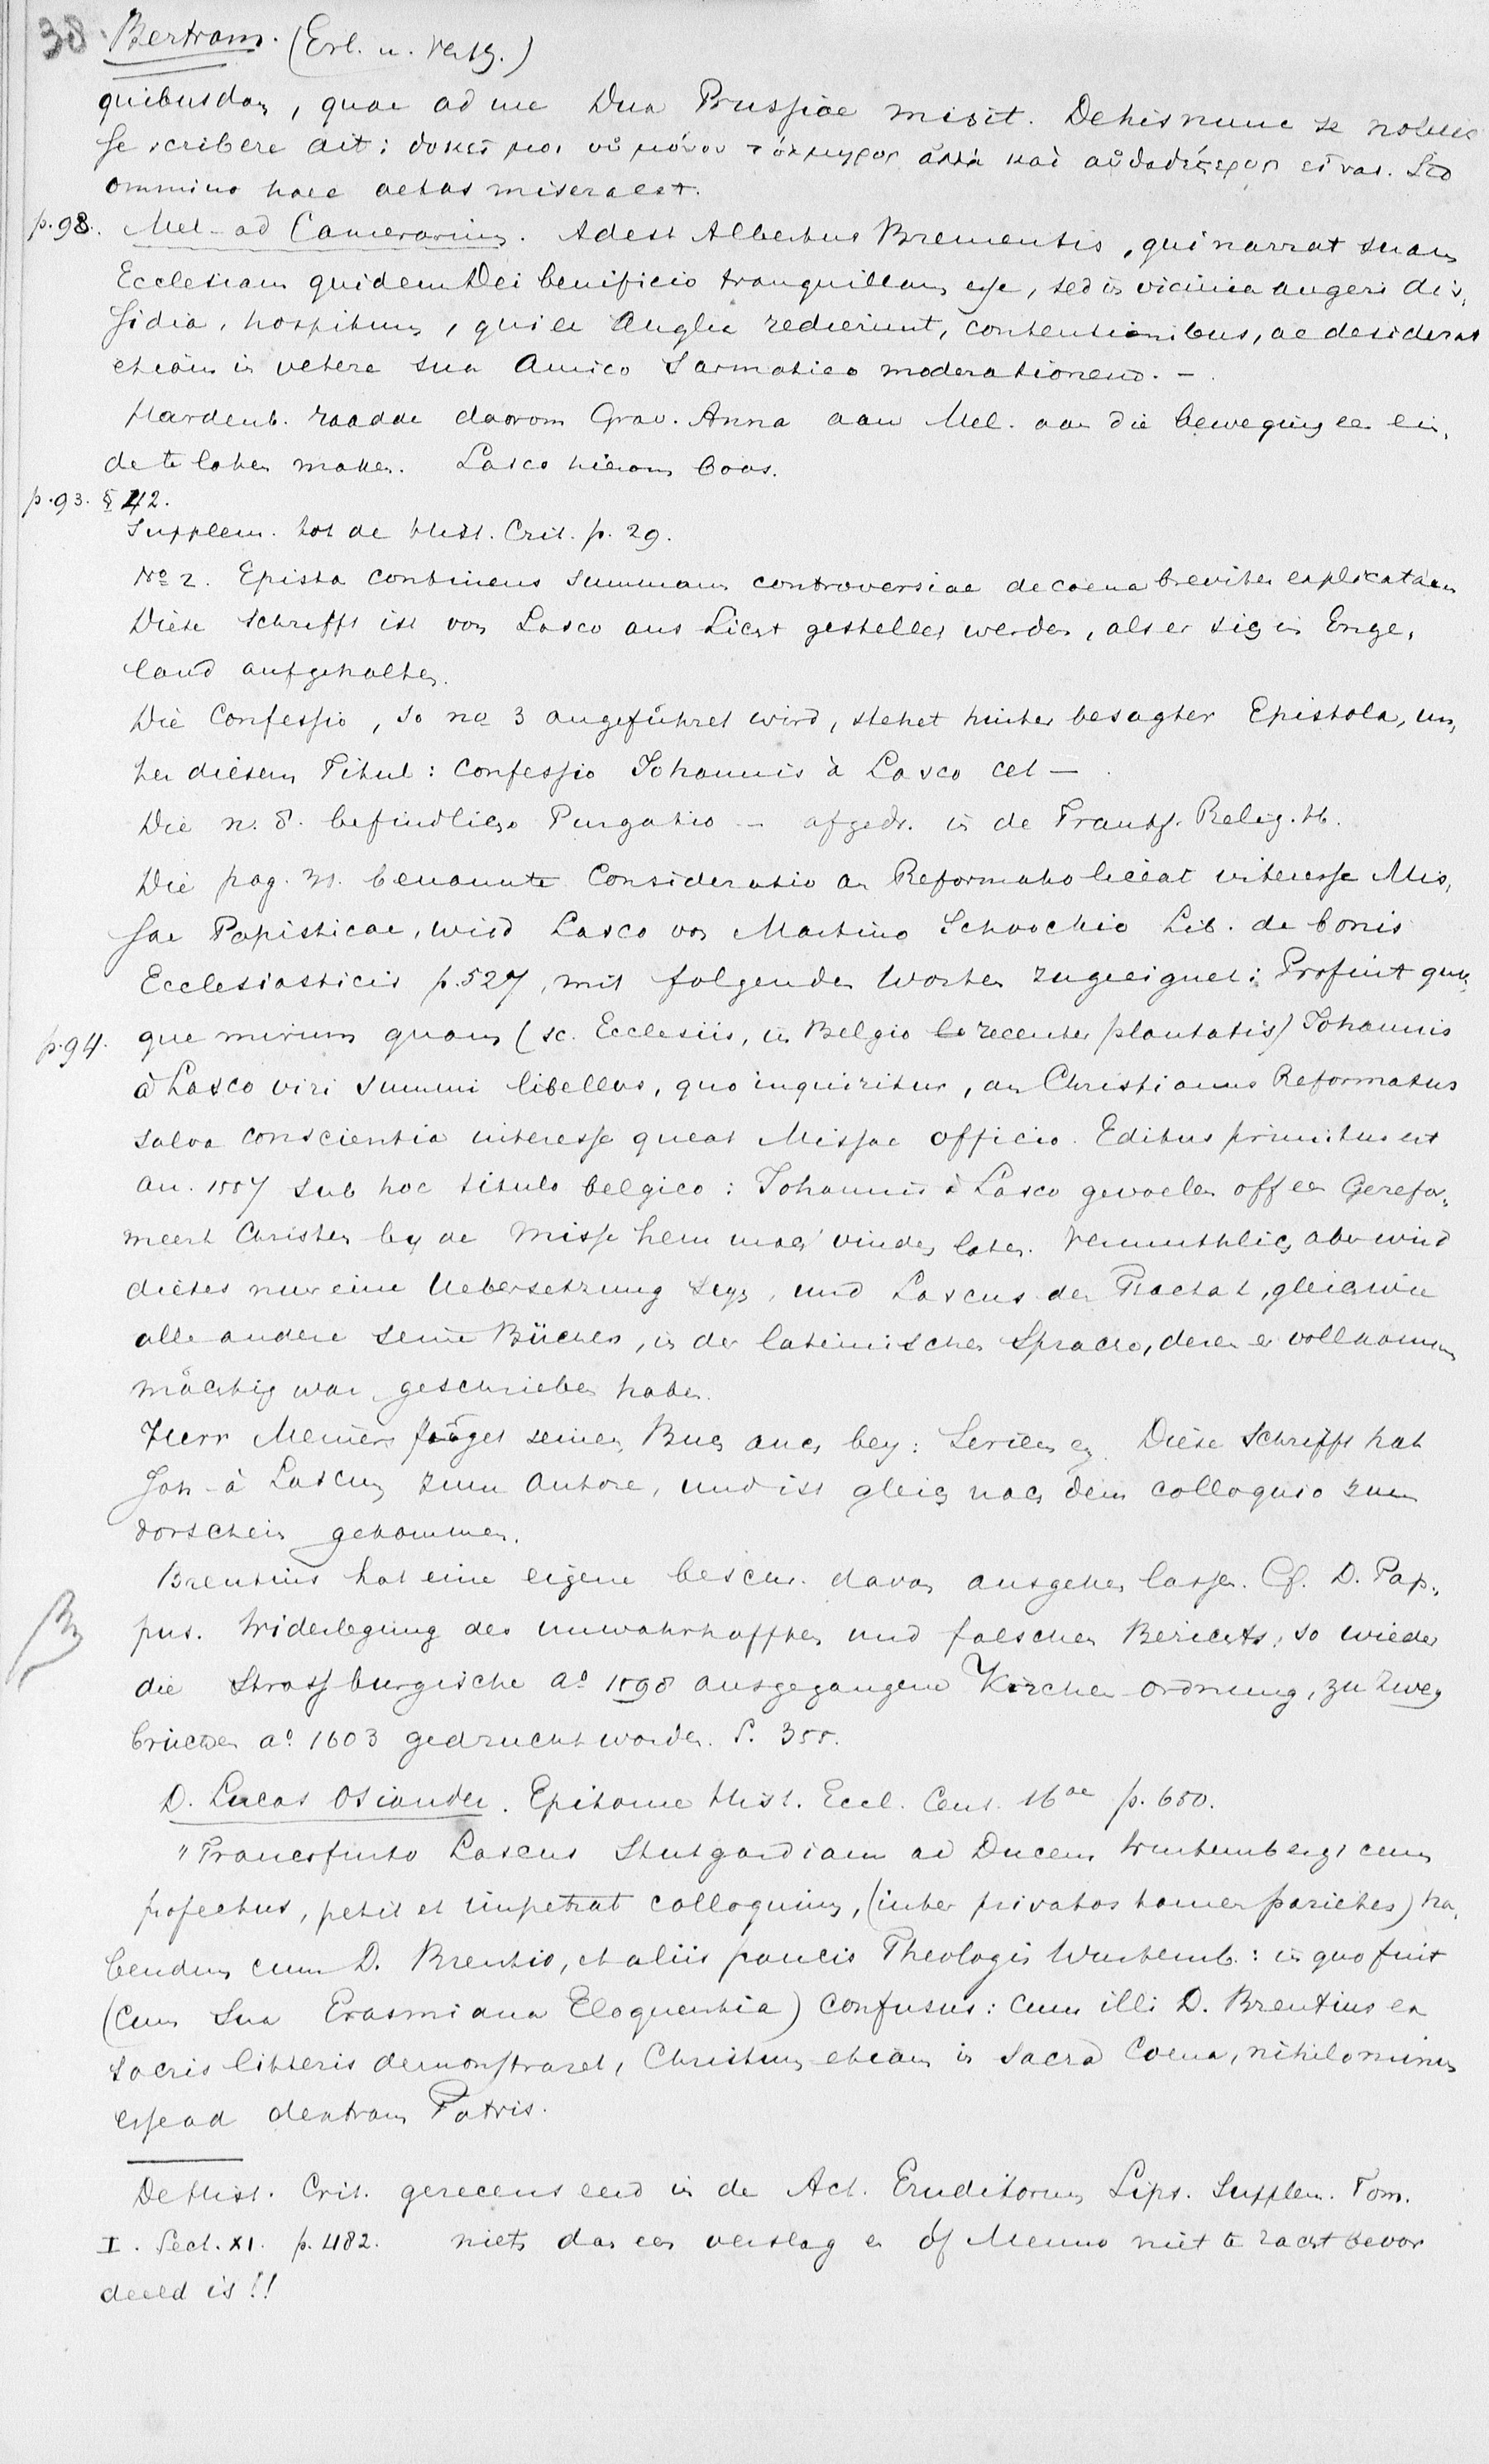 38. Bertram. (Erl. u. Verth.)
quibusdam, quae ad me Dux Prussiae misit. De his nunc se nobis
se scribere ait: δοκεῖ μοι οὐ μόνον ἀλλὰ καὶ αὐθαδέστερον εἶναι. Sed
ommino haec aetas misera est.
p. 93. Mel. ad Camerarium. Adest Albertus Bremensis, qui narrat suam
Ecclesiam quidem Dei benificio tranquillam esse, sed in vicinia augeri dis-
sidia, hospitum, qui ex Anglia redierunt, contentionibus, ac desiderat
etiam in vetere suo Amico Sarmatico moderationem. –
Hardenb. raadde daarom Grav. Anna aan Mel. aan die beweging een ein-
de te laten maken. Lasco hierom boos.
p. 93. § 42.
Supplem. tot de Hist. Crit. p. 29.
No 2. Epistola continens summam controversiae de coena breviter explicatam
Diese Schrifft ist von Lasco ans Licht gestellet werden, als er sich in Enge-
land aufgehalten.
Die Confessio, so no 3 angeführet wird, stehet hinter besagter Epistola, un-
ter diesem Titul: Confessio Johannis à Lasco cet –
Die n. 8. befindliche Purgatio – afgedr. in de Frantf. Relig. H.
Die pag. 31. benannte Consideratio an Reformato liceat interesse Mis-
sae Papisticae, wird Lasco von Martino Schoockio Lib. de bonis
Ecclesiasticis p. 527, mit folgenden Worten zugeeignet: Profuit quo-
p. 94. que mirum quam (sc. Ecclesiis, in Belgio recenter plantatis) Johannis
à Lasco viri summi libellus, quo inquiritur, an Christianus Reformatus
salva conscientia interesse queat Missae officio. Editus primitus est
an. 1557 sub hoc titulo belgico: Johannis à Lasco gevoelen off een Gerefor-
meert Christen by de Misse hem mach vinden laten. Vermuthlich aber wird
dieses nur eine Uebersetzung seyn, und Lascus den Tractat, gleichwie
alle andere seine Bücher, in der lateinischen Sprache, deren er vollkommen
mächtig war, geschrieben haben.
Herr Meiners füget seinem Buch auch bey: Seriem &. Diese Schrifft hat
Joh. à Lascum zum Autore, und ist gleich nach dem colloquio zum
vorschein gekommen.
Brentius hat eine eigene beschr. davon ausgehen lassen. Cf. D. Pap-
pus. Widerlegung des unwahrhafften und falschen Berichts, so wieder
die Strassburgische ao 1598 ausgegangene Kirchen ordnung, zu Zwey
brücken ao 1603 gedruckt worden. S. 355.
D. Lucas Osiander. Epitome Hist. Eccl. Cent. 16ae p. 650.
"Francofurto Lascus Stutgardiam ad Ducem Wurtembergicum
profectus, petit et impetrat colloquium, (inter privatos tamen parietes) ha-
bendum cum D. Brentio, et aliis paucis Theologis Wurtemb.: in quo fuit
(cum sua Erasmiana Eloquentia) confusus: cum illi D. Brentius ex
sacris litteris demonstraret, Christum etiam in sacra Coena, nihilominus
esse ad dextram Patris.
De Hist. Crit. gerecenseerd in de Act. Eruditorum Lips. Supplem. Tom.
I. Sect. XI. p. 482. niets dan een verslag en óf Menno niet te zacht beoor
deeld is!!